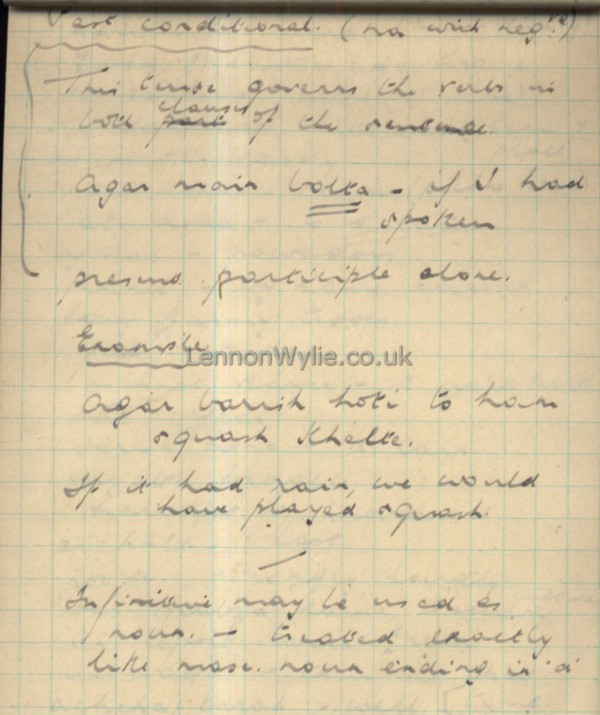 Past conditional. (na with neg.ve)
This tense governs the verbs in
both clauses of the sentence.
Agar main bolta - if I had
spoken
present participle alone.
Example
LennonWylie.co.uk
Agar barish hoti to ham
squash khelte.
If it had rain, we would
have played squash.
Infinitive may be used as
noun. - treated exactly
like masc. noun ending in 'a'